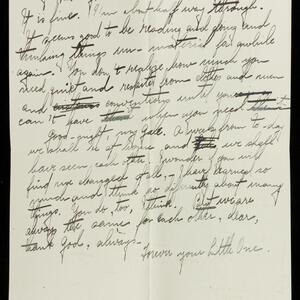 It is fine. I'm about half way through.
It seems good to be reading and doing and
thinking things un-material for awhile
again. You don't realize how much you
need quiet and respite from cities and men
and conventions until you
can't have when you need
Good-night, my face. A week from to-day
we shall be at home and we shall
have seen each other. I wonder if you will
find me changed at all. I have learned so
much and think so differently about many
things. You do, too, I think. But we are
always the same for each other, dear,
thank God, always.
Forever your Little One.